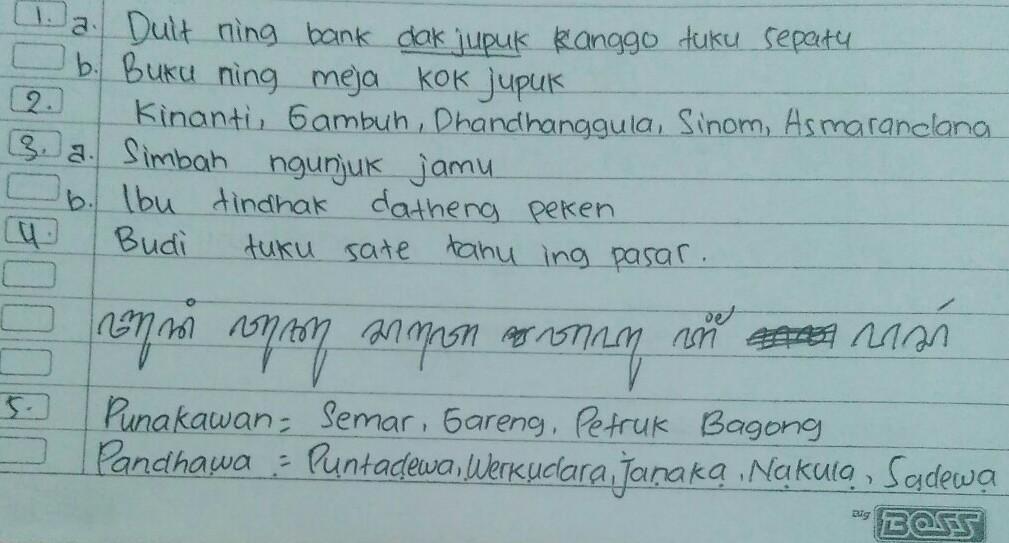 1. a. Duit ning bank dak jupuk kanggo tuku sepatu
b. Buku ning meja kok jupuk
2. Kinanti, Gambuh, Dhandhanggula, Sinom, Asmarandana
3. a. Simbah ngunjuk jamu
b. Ibu tindhak datheng peken
4. Budi tuku sate tahu ing pasar.
5. Punakawan = Semar, Gareng, Petruk Bagong
Pandhawa = Puntadewa, Werkudara, Janaka, Nakula, Sadewa
Big BOSS